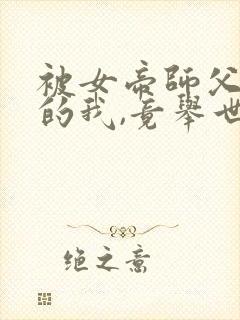 被女帝師父
的我,竟舉世
绝之意